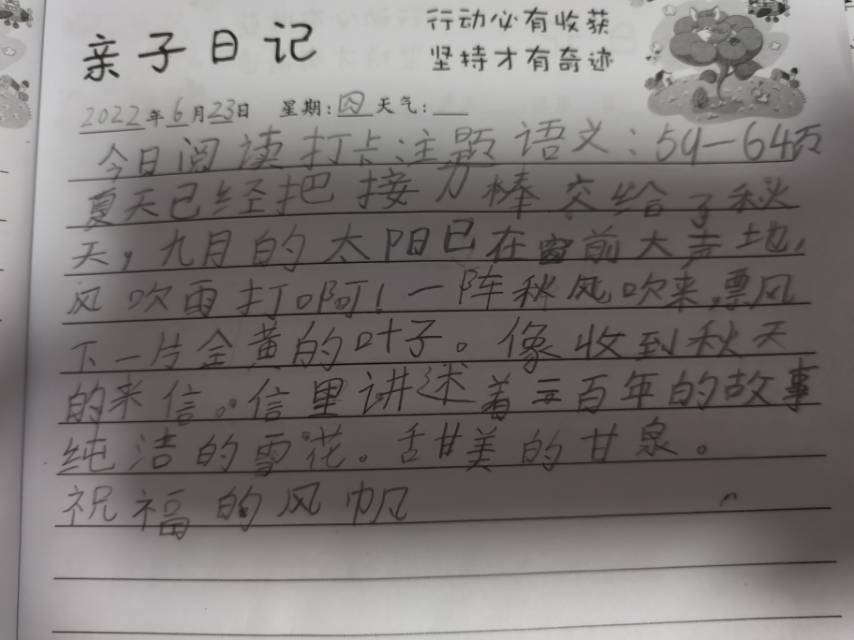 亲子日记
行动必有收获
坚持才有奇迹
2022年6月23日 星期:四 天气:
今日阅读打卡主题语文:59—64页
夏天已经把接力棒交给了秋
天,九月的太阳已在窗前大声地,
风吹雨打啊!一阵秋风吹来,票风
下一片金黄的叶子。像收到秋天
的来信。信里讲述着三百年的故事
纯洁的雪花。甜美的甘泉。
祝福的风帆